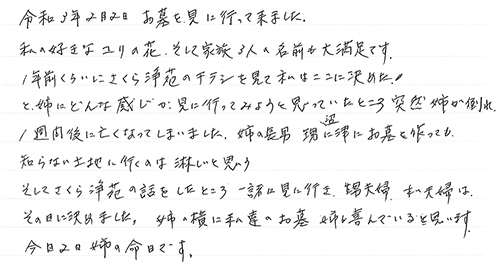 令和3年2月2日 お墓を見に行って来ました。
私の好きなユリの花、そして家族3人の名前も大満足です。
1年前くらいにさくら浄苑のチラシを見て私はここに決めた!
と、姉にどんな感じか見に行ってみようと思っていたところ突然姉が倒れ
1週間後に亡くなってしまいました。姉の長男 甥に にお墓を作っても
知らない土地に行くのは淋しいと思う
そしてさくら浄苑の話をしたところ一諸に見に行き、甥夫婦、私夫婦は、
その日に決めました。姉の横に私達のお墓 姉も喜んでいると思います。
今日2日姉の命日です。